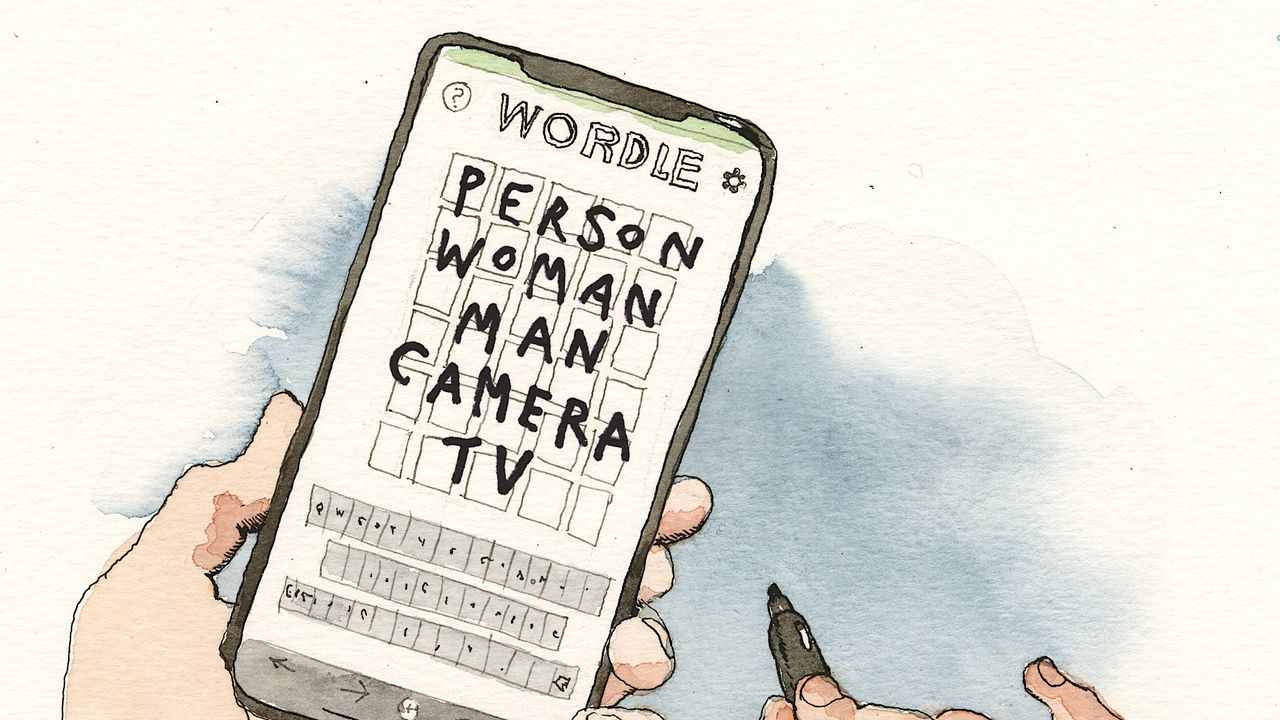 ?
WORDLE
PERSON
WOMAN
MAN
CAMERA
TV